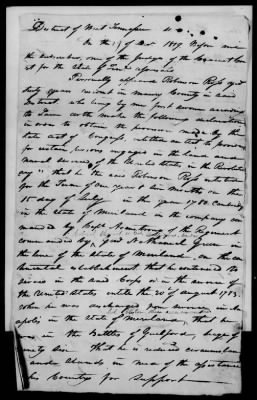 District of West Tennessee
On the 19 of Nov 1819 Before me
the subscriber, one of the Judges of the
for the State of Tennessee
Personally appeared Robinson Ross aged
sixty years resident in Maury County in said
District, who being by me first sworn according
to Law doth make the following declaration
in order to obtain the provision made by the
late act of Congress entitled an act to provide
for certain persons engaged in the land and
naval service of the United States in the Revolution
ary that he the said Robinson Ross enlisted
for the Term of one year & six months on the
15 day of July in the year 1780
in the State of Maryland in the company com
manded by Capt Armstrong of the Regiment
commanded by Genl Nathaniel Green in
the line of the State of Maryland on the con
tinental establishment that he continued to
serve in the said Corps or in the service of
the United States until the 20 of august 1783
when he was discharged from service in Ann
apolis in the State of Maryland, that he
was in the Battles of Guilford, siege of
ninety Six that he is in reduced circumstances
and stands in need of the assistance
of his Country for support